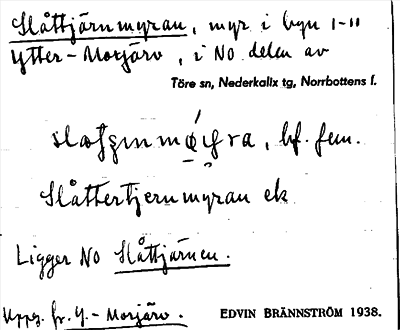 Slåttjärnmyran, myr i byn 1-11
Ytter-Morjärv, i NO delen av
Töre sn, Nederkalix tg, Norrbottens l.
bf. fem.
Slåttertjernmyran ek
Ligger NO Slåttjärnen.
Uppg. fr. Y.-Morjärv. EDVIN BRÄNNSTRÖM 1938.